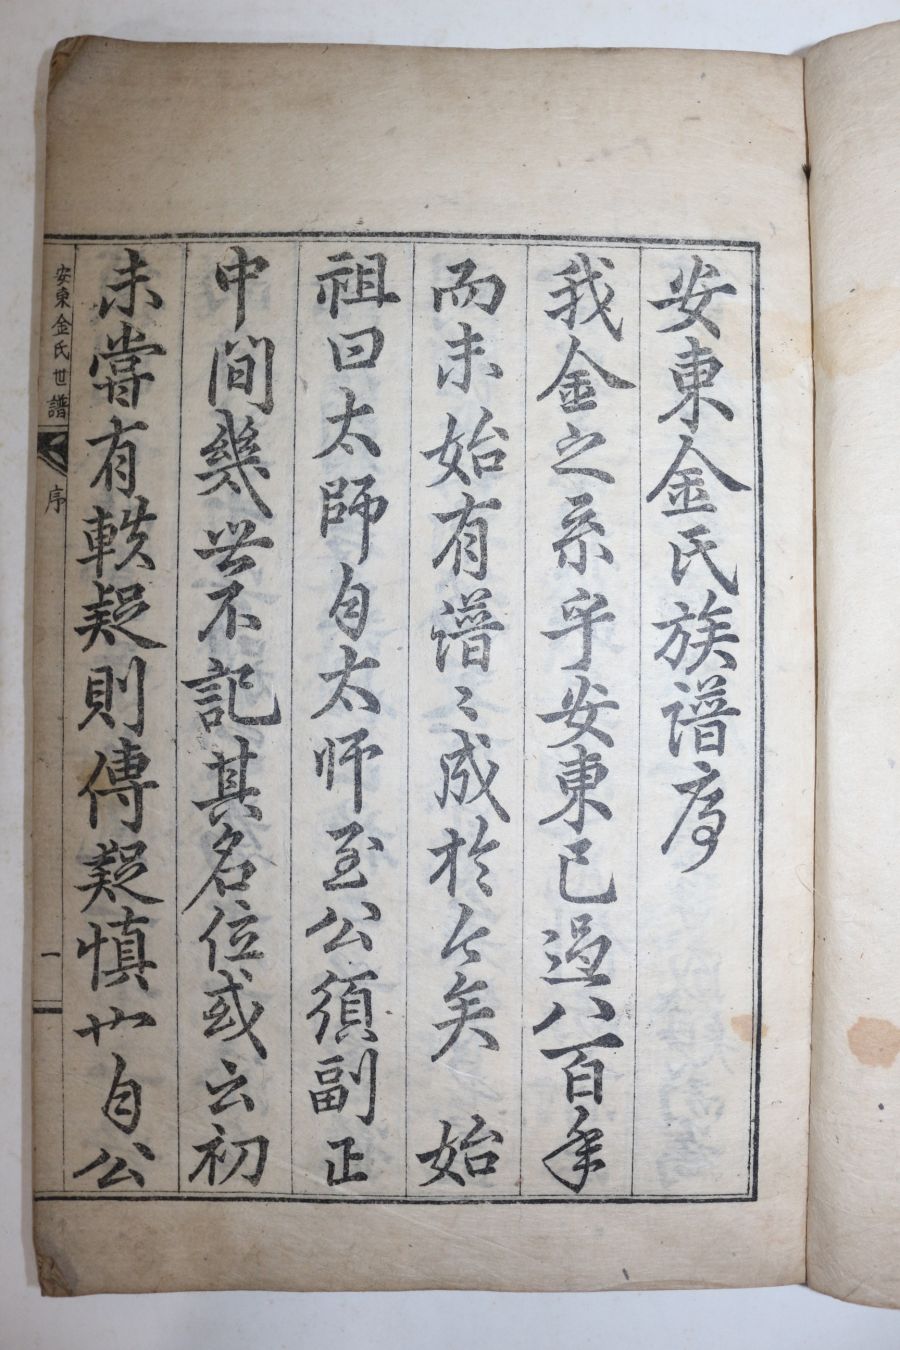 安東金氏族譜序
我金之系乎安東已過八百年
而未始有譜〻成於今矣 始
祖曰太師自太师至公須副正
中間幾世不記其名位或云初
未嘗有軼疑則傳疑慎也自公
安東金氏世譜 序 一